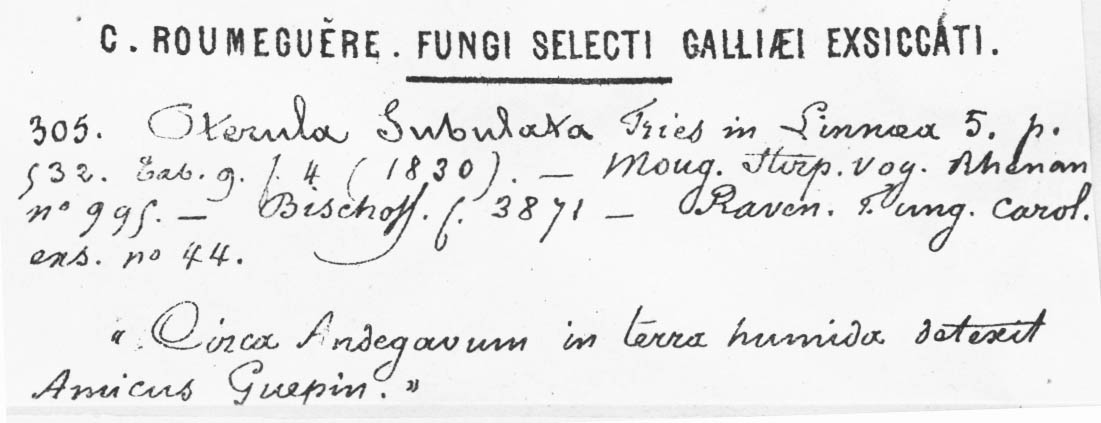 C. ROUMEGUÈRE. FUNGI SELECTI GALLIÆI EXSICCATI.
305. Oterula Subulata Fries in Linnæa 5. p.
532. Tab. 9. f. 4 (1830). — Moug. Stirp. Vog. Rhenan
no 995. — Bischoff. f. 3871 — Raven. Fung. Carol.
exs. no 44.
" Circa Andegavum in terra humida detexit
Amicus Guepin. "